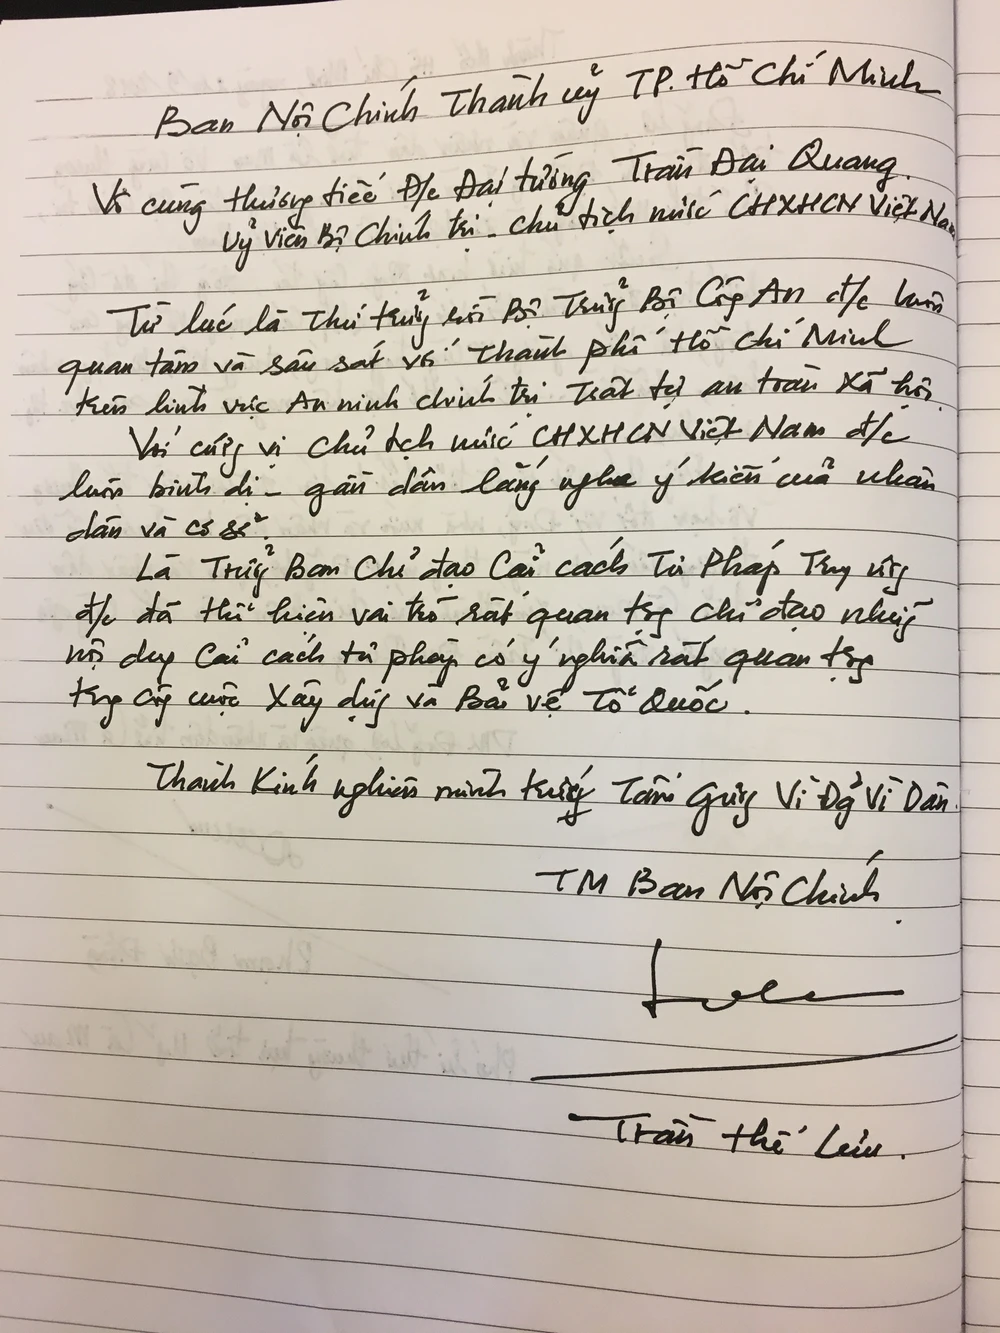 Ban Nội Chính Thành ủy TP. Hồ Chí Minh
Vô cùng thương tiếc Đ/c Đại tướng Trần Đại Quang.
Uỷ viên Bộ Chính trị - Chủ tịch nước CHXHCN Việt Nam
Từ lúc là Thứ trưởng rồi Bộ Trưởng Bộ Công An đ/c luôn
quan tâm và sâu sát với Thành phố Hồ Chí Minh
trên lĩnh vực An ninh chính trị Trật tự an toàn Xã hội.
Với cương vị Chủ tịch nước CHXHCN Việt Nam đ/c
luôn bình dị - gần dân lắng nghe ý kiến của nhân
dân và cơ sở.
Là Trưởng Ban Chỉ đạo Cải cách Tư Pháp Trung ương
đ/c đã thể hiện vai trò rất quan trọng chỉ đạo những
nội dung Cải cách tư pháp có ý nghĩa rất quan trọng
trong công cuộc Xây dựng và Bảo vệ Tổ Quốc.
Thành Kính nghiêng mình trước Tấm Gương Vì Đảng Vì Dân.
TM Ban Nội Chính
Trần Thế Lưu.